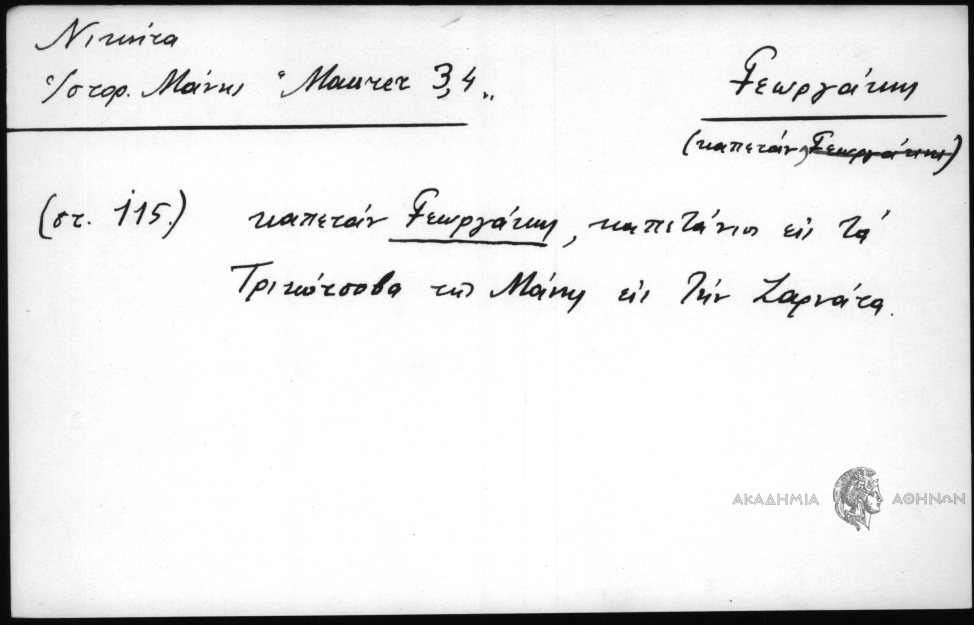 Νικήτα
Ἱστορ. Μάνης "Maurer 3,4"
Γεωργάκης
(καπετάν Γεωργάκης)
(στ. 115.) καπετάν Γεωργάκης, καπετάνιος εἰς τά
Τρικότσοβα τῆς Μάνης εἰς τήν Ζαρνάτα.
ΑΚΑΔΗΜΙΑ ΑΘΗΝΩΝ